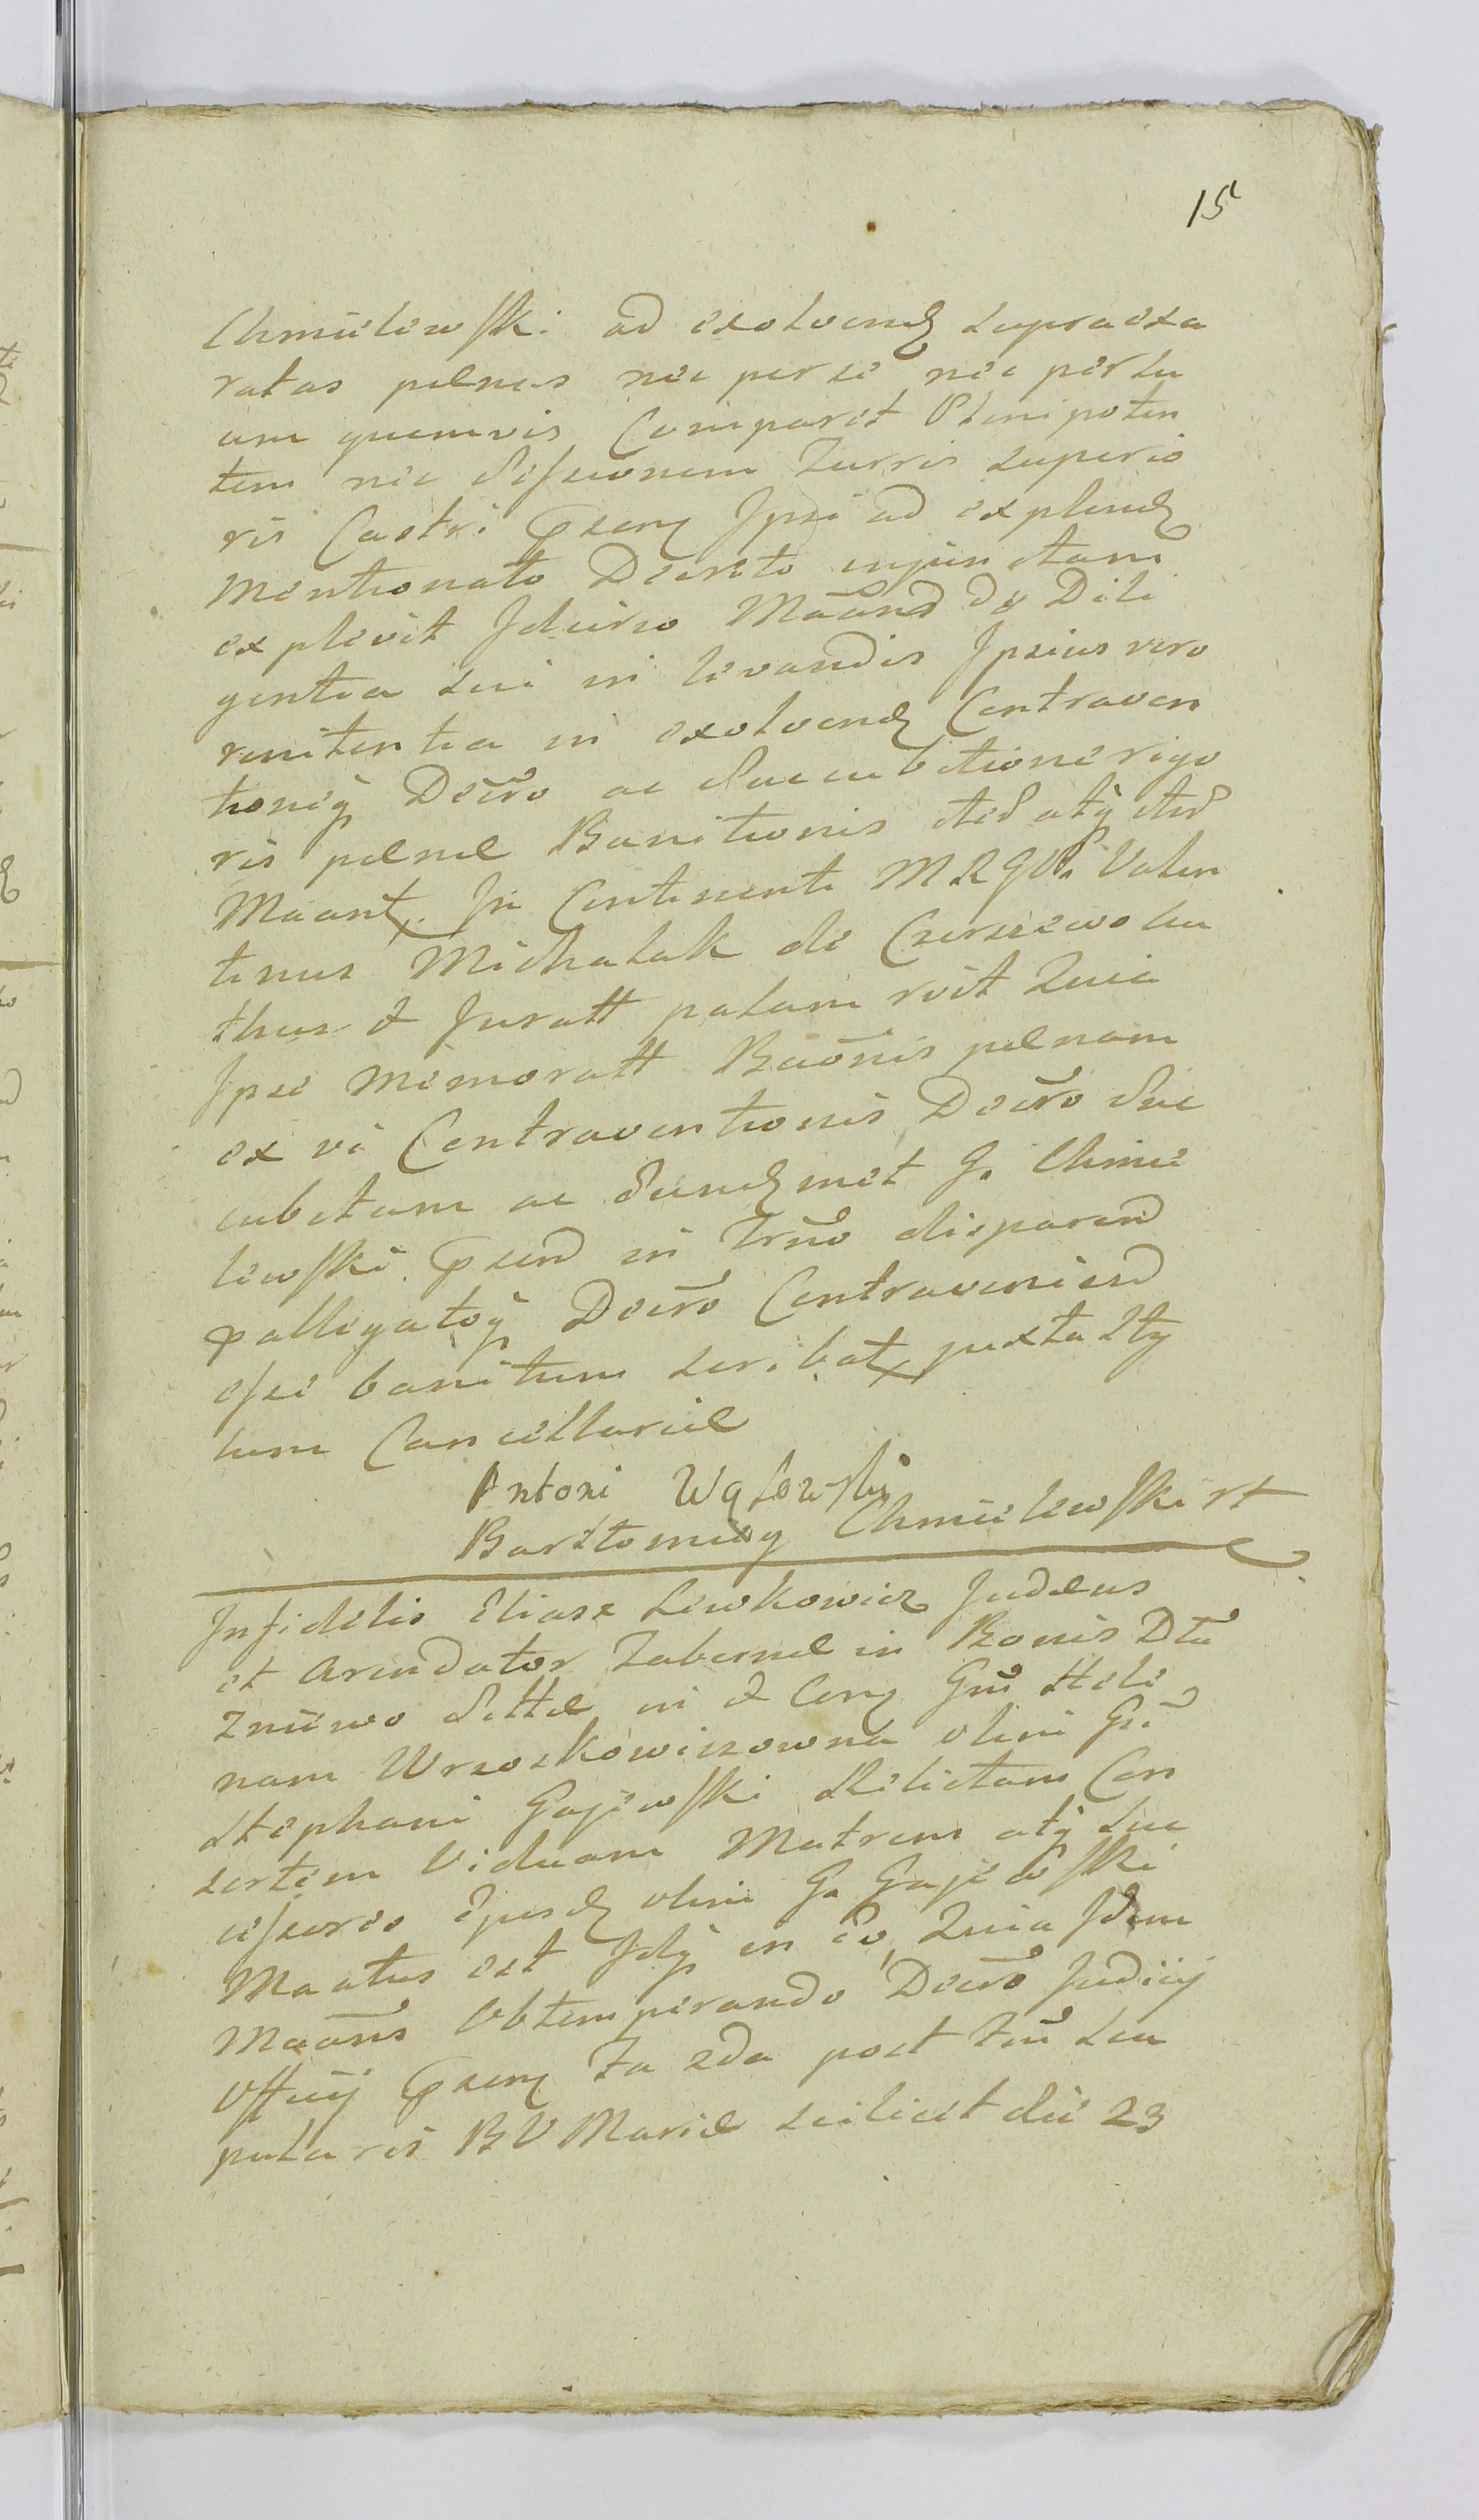 15
Chmielewski ad exolvend supraexa
ratas pænas nec per se nec per su
um quemvis Comparet Plenipoten
tem nec Sessionem Turris superio
ris Castri Psens Ipsi ad explend
mentionato Decreto injunctam
explevit Idcirco Maand de Dili
gentia sui in levandis Ipsius vero
renitentia in exolvend Contraven
tioneq Decro ac Succubitione rigo
ris pænæ Banitionis sted atq sted
Maant. In Continenti MRGVl Valen
tinus Michalak de Czerszewo lu
thus & Juratt palam rvit Quia
Ipse memoratt Baonis pænam
ex vi Contraventionis Decro Suc
cubitam ac Eundmet G. Chmie
lewski Psend in Trno disparend
pallegatoq Decro Contraveniend
esse banitum scribat juxta Sty
lum Cancellariæ
Antoni Wąsowski
Bartłomiey Chmielewski rt
Infidelis Eliasz Lewkowicz Judæus
et Arendator Tabernæ in Bonis Dtu
Zniewo Sittæ in & Conz Gnu Hele
nam Wrzoskowiczowna olim Gsi
Stephani Gajewski Relictam Con
sortem Viduam Matrem atq Suc
cessores Ejusd olim G. Gajewski
Maatus est Idq in Eo, Quia Idem
Maans Obtemperando Decro Judicij
Officij Psenz Fa 2da post Fm Sca
pularis BV Mariæ scilicet die 23